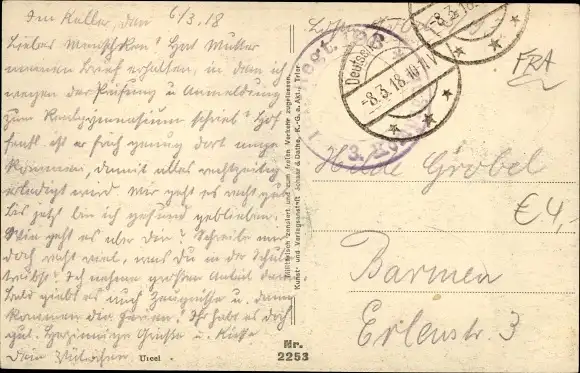 Im Keller, den 6/3.18
Liebes Menschken! Hat Mutter
meinen Brief erhalten, in dem ich
wegen der Prüfung u. Anmeldung
zum Realgymnasium schrieb? Hof-
fentl. ist er früh genug dort ange-
kommen, damit alles rechtzeitig
erledigt wird. Mir geht es recht gut.
Bis jetzt bin ich gesund geblieben.
Wie geht es aber Dir? Schreibe mir
doch recht viel, was Du in der Schule
treibst! Ich nehme großen Anteil dar
Bald giebt es auch Zeugnisse u. dann
kommen die Ferien! Ihr habt es doch
gut. Herzinnige Grüße u. Küsse
Dein
Uccel
Militärisch zensiert und zum freien Verkehr zugelassen.
Kunst- und Verlagsanstalt Schaar & Dathe, K.-G. a. Akt., Trier
Nr.
2253
Deutsche
-8.3.18.
-8.3.18.10-11V
FRA
Hilde Grobel
€4,
Barmen
Erlenstr. 3